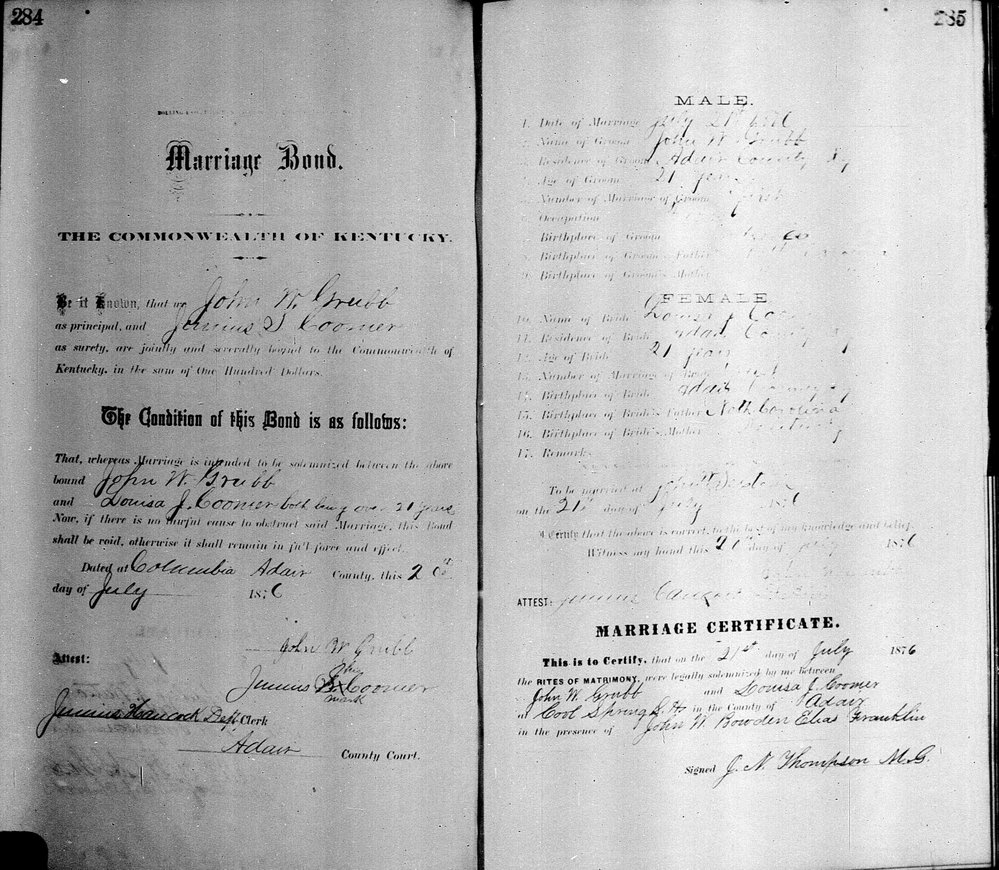 284
Marriage Bond.
THE COMMONWEALTH OF KENTUCKY.
Be it Known, that we John W Grubb
as principal, and Junius S Coomer
as surety, are jointly and severally bound to the Commonwealth of
Kentucky, in the sum of One Hundred Dollars.
The Condition of this Bond is as follows:
That, whereas Marriage is intended to be solemnized between the above
bound John W. Grubb
and Louisa J. Coomer both being over 21 years
Now, if there is no lawful cause to obstruct said Marriage, this Bond
shall be void, otherwise it shall remain in full force and effect.
Dated at Columbia Adair County, this 20th
day of July 1876
John W Grubb
Attest: his
Junius Coomer
mark
Junius Hancock Dept Clerk
Adair County Court.
285
MALE.
1. Date of Marriage July 21st 1876
2. Name of Groom John W Grubb
3. Residence of Groom Adair County Ky
4. Age of Groom 21 years
5. Number of Marriage of Groom first
6. Occupation
Birthplace of Groom Co
8. Birthplace of Groom's Father
9. Birthplace of Groom's Mother
FEMALE
10. Name of Bride Louisa J Coo
11. Residence of Bride Adair County Ky
12. Age of Bride 21 years
13. Number of Marriage of Bride first
14. Birthplace of Bride Adair County Ky
15. Birthplace of Bride's Father North Carolina
16. Birthplace of Bride's Mother Kentucky
17. Remarks
To be married at
on the 21st day of July 1876
I Certify that the above is correct, to the best of my knowledge and belief.
Witness my hand this 20th day of July 1876
John W Grubb
ATTEST: Junius Hancock
MARRIAGE CERTIFICATE.
This is to Certify, that on the 21st day of July 1876
the RITES OF MATRIMONY, were legally solemnized by me Between
John W. Grubb and Louisa J. Coomer
at Cool Spring in the County of Adair
in the presence of John W Bowden Elias Franklin
Signed J. N. Thompson M.G.